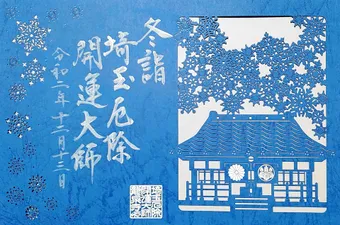 冬詣
埼玉厄除
開運大師
令和二年十二月十三日